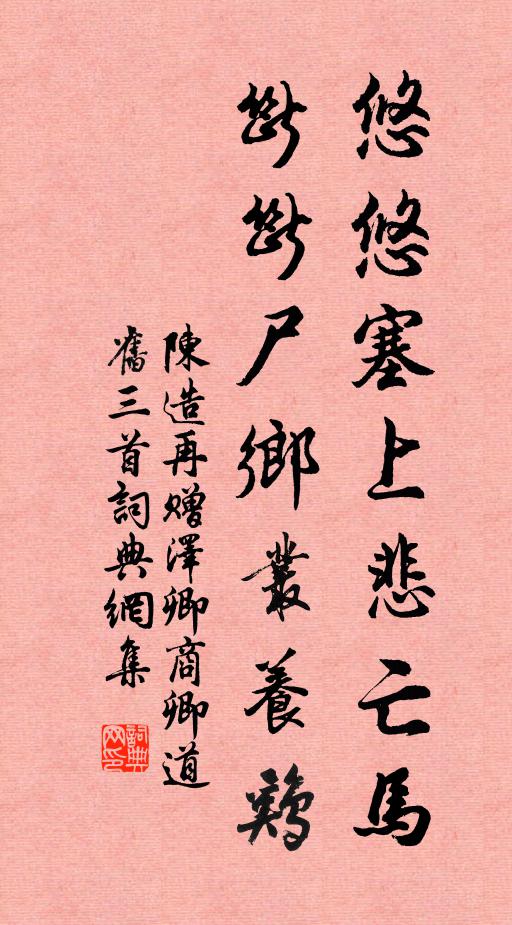 悠悠塞上悲亡馬
斷斷尸鄉叢養鷄
陳造再贈澤卿商卿道
舊三首詞典網集
詞典
网印